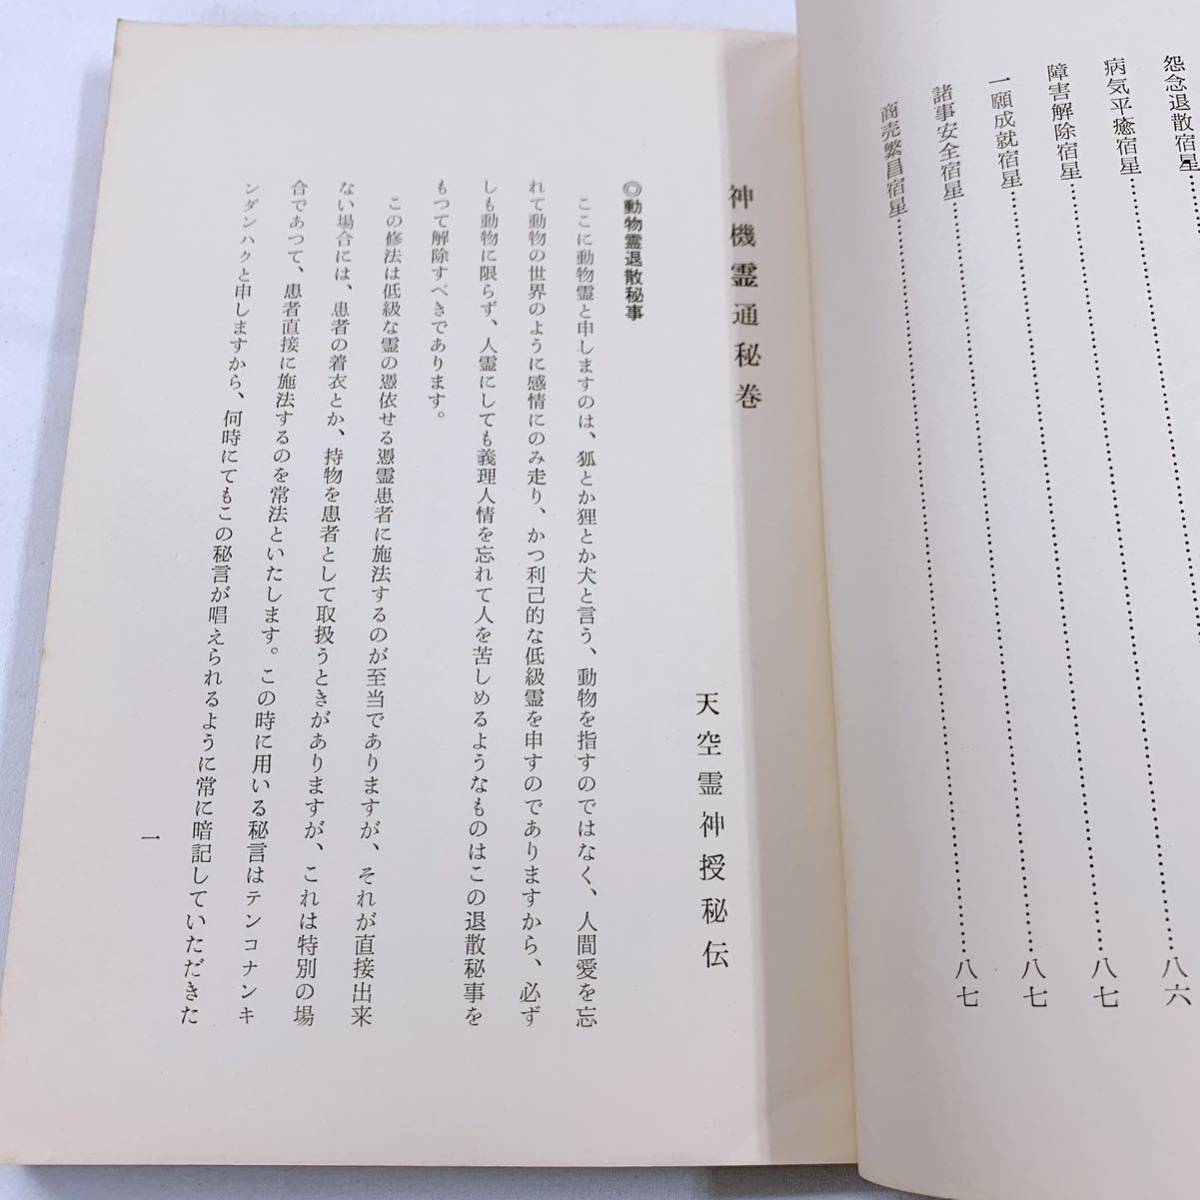 怨念退散宿星……八六
病気平癒宿星……八七
障害解除宿星……八七
一願成就宿星……八七
諸事安全宿星
商売繁昌宿星
神機霊通秘巻
天空霊神授秘伝
◎動物霊退散秘事
ここに動物霊と申しますのは、狐とか狸とか犬と言う、動物を指すのではなく、人間愛を忘
れて動物の世界のように感情にのみ走り、かつ利己的な低級霊を申すのでありますから、必ず
しも動物に限らず、人霊にしても義理人情を忘れて人を苦しめるようなものはこの退散秘事を
もつて解除すべきであります。
この修法は低級な霊の憑依せる憑霊患者に施法するのが至当でありますが、それが直接出来
ない場合には、患者の着衣とか、持物を患者として取扱うときがありますが、これは特別の場
合であつて、患者直接に施法するのを常法といたします。この時に用いる秘言はテンコナンキ
ンダンハクと申しますから、何時にてもこの秘言が唱えられるように常に暗記していただきた
一